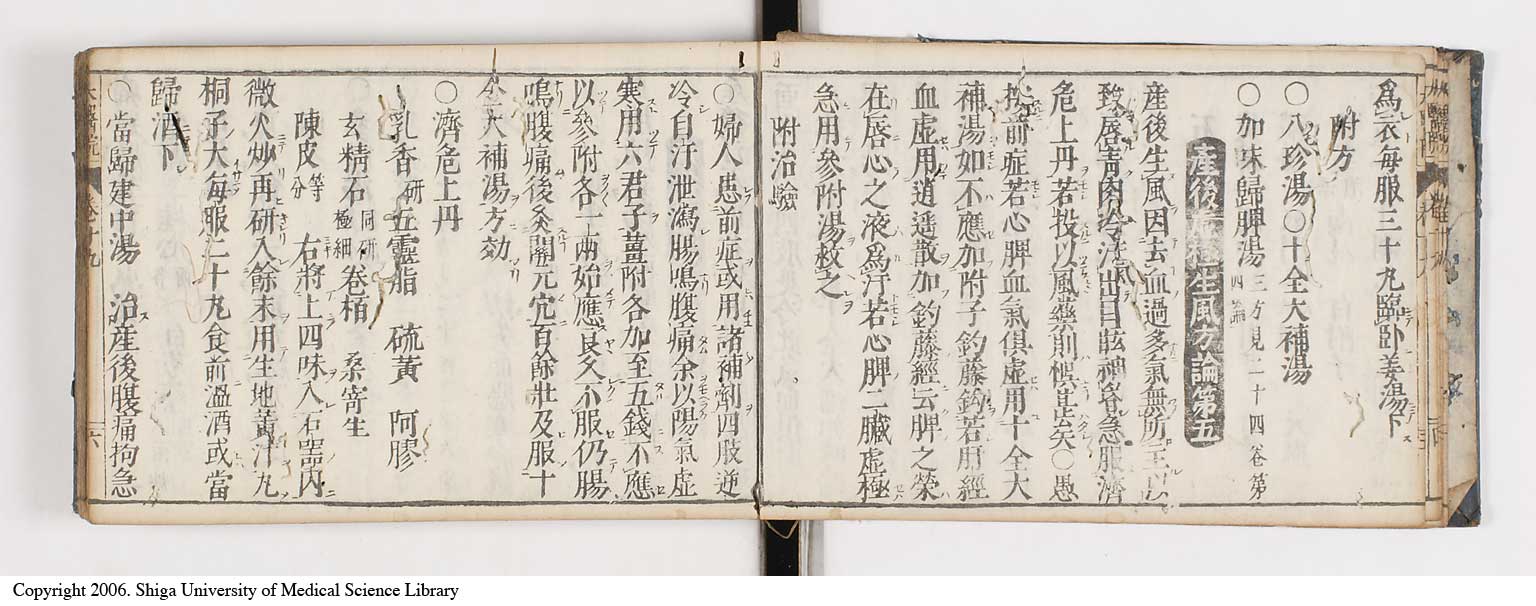 為衣每服三十丸臨卧姜湯下
附方
〇八珍湯〇十全大補湯
〇加味歸脾湯三方見二十四卷第四論
產後 生風方論第五
產後生風因去血過多氣無所主以
致唇青肉冷汗出目眩神昏急服濟
危上丹若投以風藥則悞甚矣〇愚
按前症若心脾血氣俱虛用十全大
補湯如不應加附子鈎藤鈎若肝經
血虛用逍遥散加鈎藤經云脾之榮
在唇心之液為汗若心脾二臟虛極
急用參附湯救之
附治驗
〇婦人患前症或用諸補劑四肢逆
冷自汗泄瀉腸鳴腹痛余以陽氣虛
寒用六君子薑附各加至五錢不應
以參附各一兩始應良久不服仍腸
鳴腹痛後灸關元穴百餘壯及服十
全大補湯方効
〇濟危上丹
乳香研五靈脂 硫黃 阿膠
玄精石同研極細卷栢 桑寄生
陳皮等分 右將上四味入石器內
微火炒再研入餘末用生地黃汁丸
桐子大每服二十丸食前溫酒或當
歸酒下
〇當歸建中湯 治產後腹痛拘急
卷十九
六
Copyright 2006. Shiga University of Medical Science Library